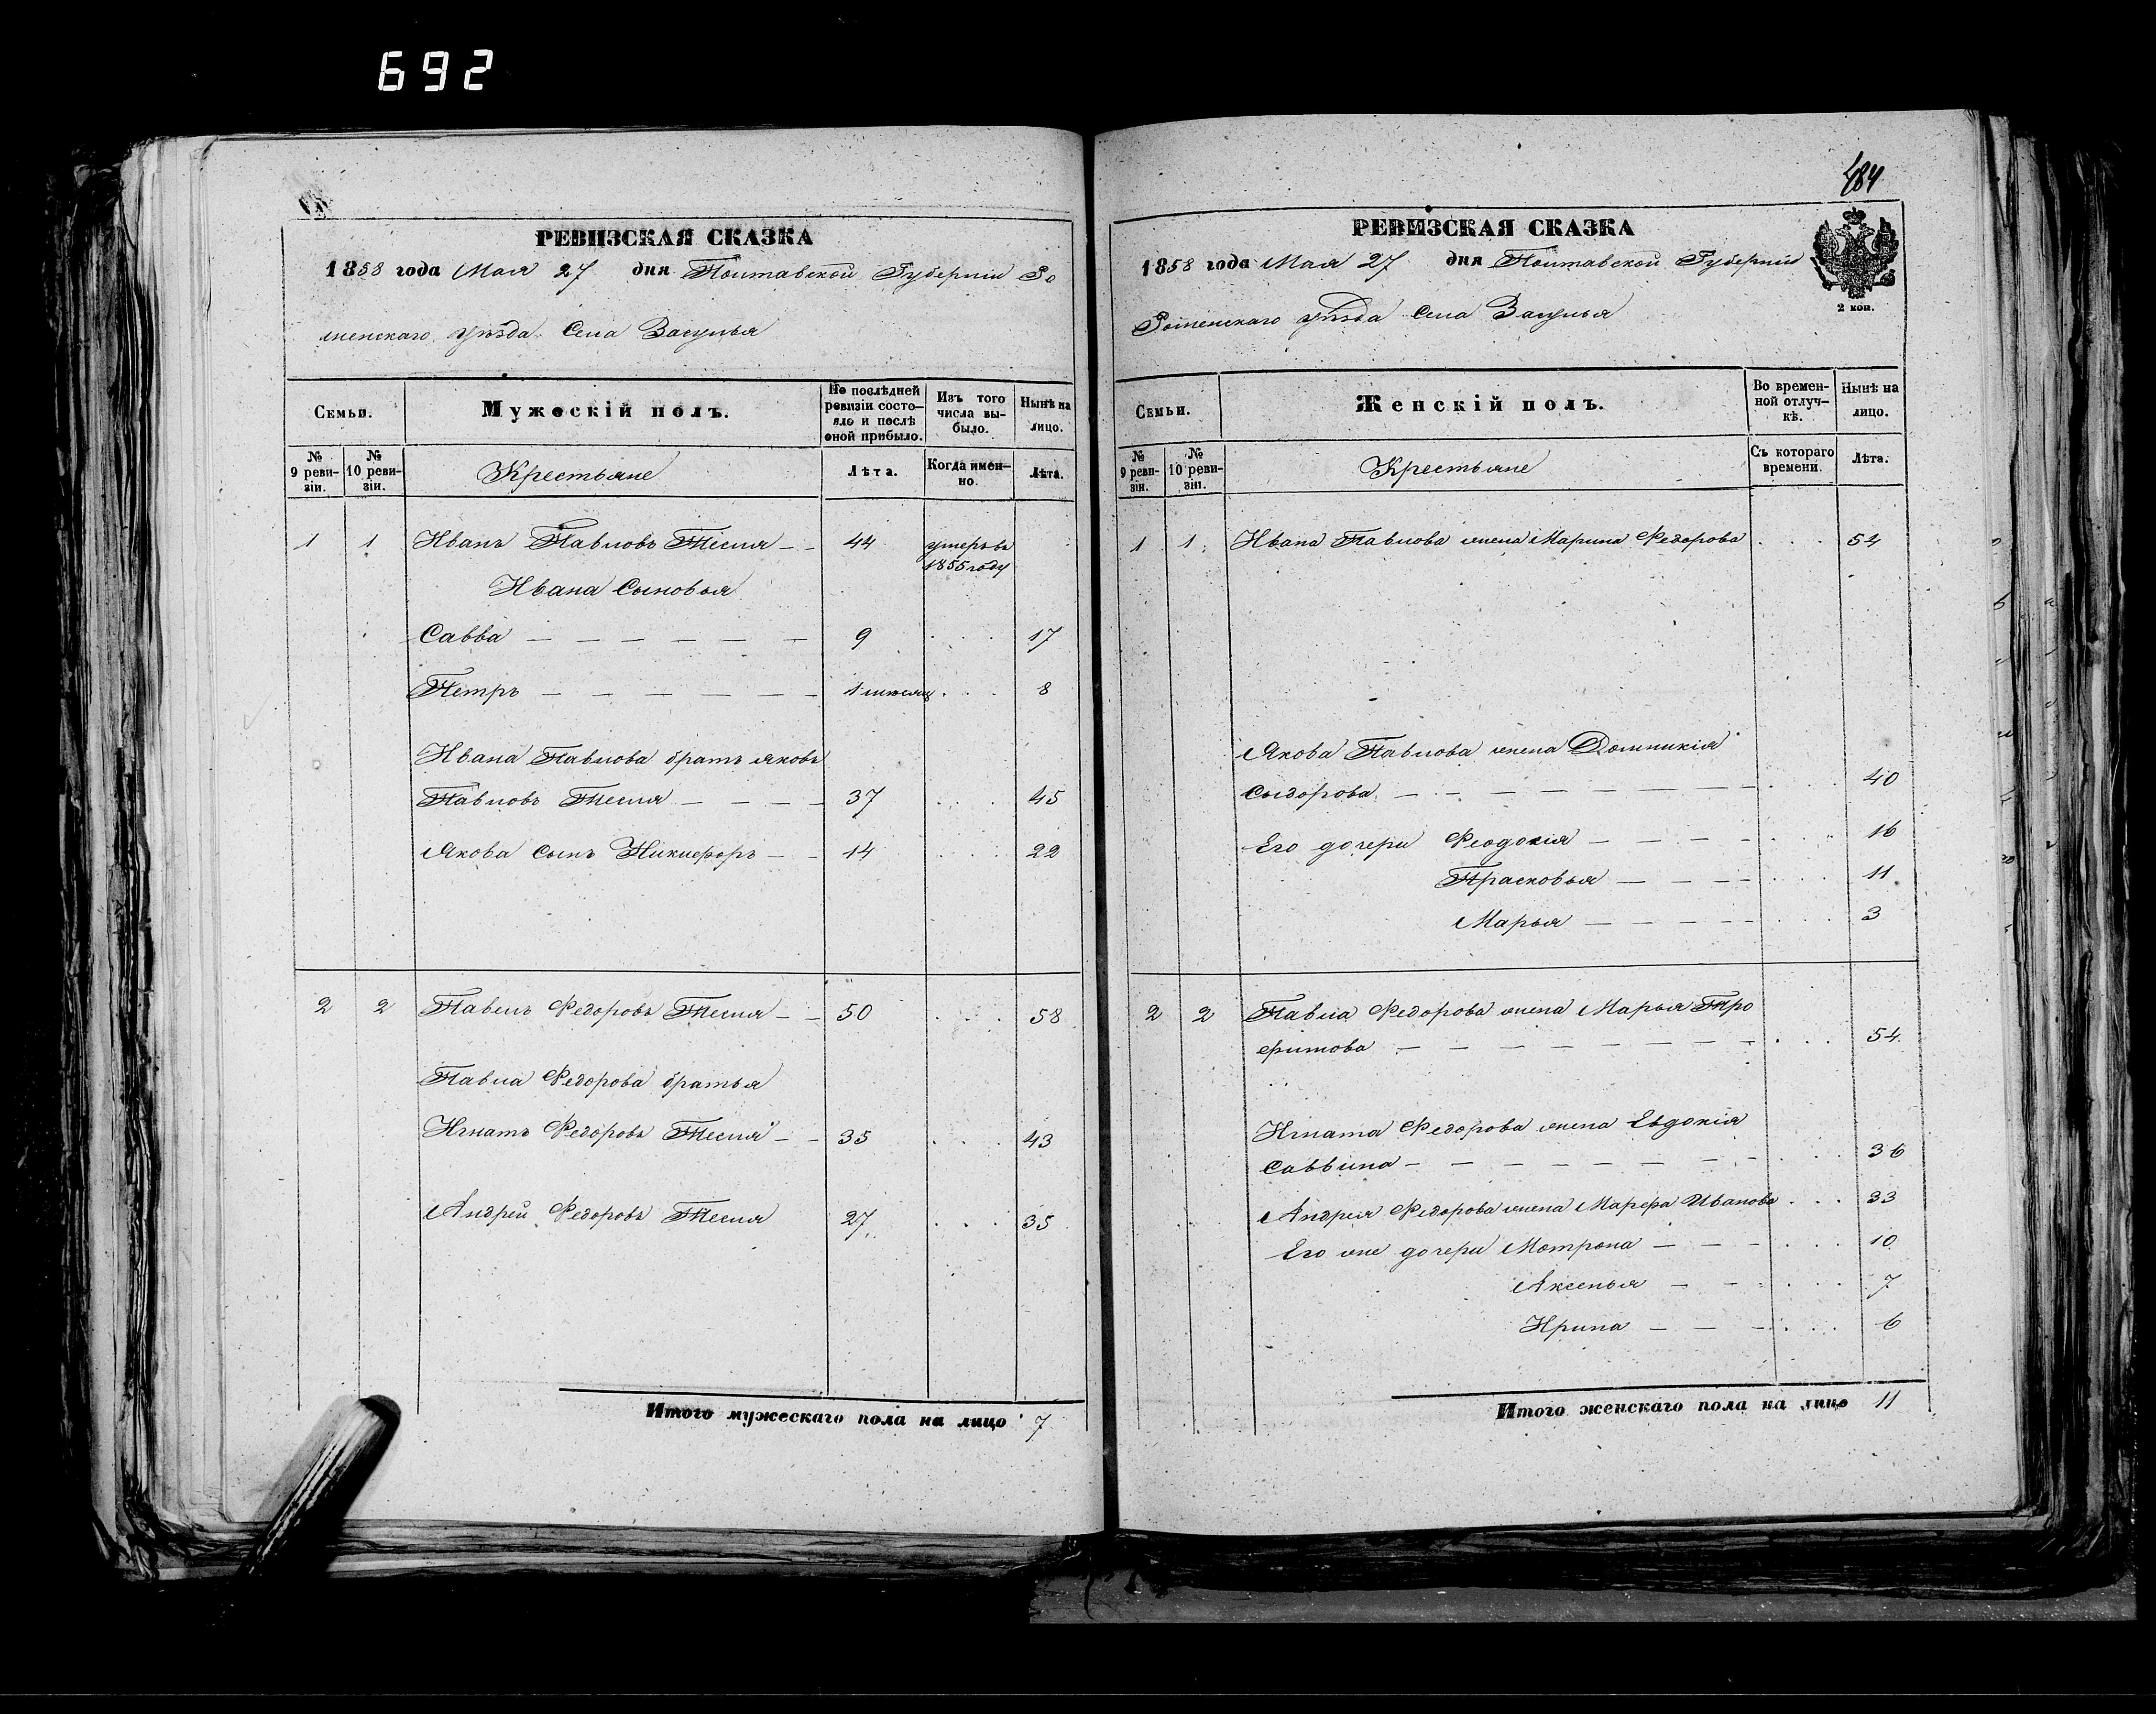 692
РЕВИЗСКАЯ СКАЗКА
1858 года Мая 27 дня Полтавской Губерніи Ро
менскаго уѣзда Села Засулья
Семьи.
Мужескій полъ.
По послѣдней ревизіи состояло и послѣ оной прибыло.
Изъ того числа выбыло.
Нынѣ на лицо.
№ 9 ревизіи.
№ 10 ревизіи.
Крестьяне
Лѣта.
Когда именно.
Лѣта.
1 1 Иванъ Павловъ Тесля 44 умеръ въ 1855 году
Ивана Сыновья
Савва 9 17
Петръ 1 мѣсяц 8
Ивана Павлова братъ Яковъ
Павловъ Тесля 37 45
Якова сынъ Никифоръ 14 22
2 2 Павелъ Федоровъ Тесля 50 58
Павла Федорова братья
Игнатъ Федоровъ Тесля 35 43
Андрей Федоровъ Тесля 27 35
Итого мужескаго пола на лицо 7
484
РЕВИЗСКАЯ СКАЗКА
1858 года Мая 27 дня Полтавской Губерніи
Роменскаго уѣзда Села Засулья
2 коп.
Семьи.
Женскій полъ.
Во временной отлучкѣ.
Нынѣ на лицо.
№ 9 ревизіи.
№ 10 ревизіи.
Крестьяне
Съ котораго времени.
Лѣта.
1 1 Ивана Павлова жена Марина Федорова 54
Якова Павлова жена Домникія
Сыдорова 40
Его дочери Феодосія 16
Прасковья 11
Марья 3
2 2 Павла Федорова жена Марья Тро
фимова 54
Игната Федорова жена Евдокія
Саввина 36
Андрея Федорова жена Марфа Иванова 33
Его же дочери Мотрона 10
Аксенья 7
Ирина 6
Итого женскаго пола на лицо 11